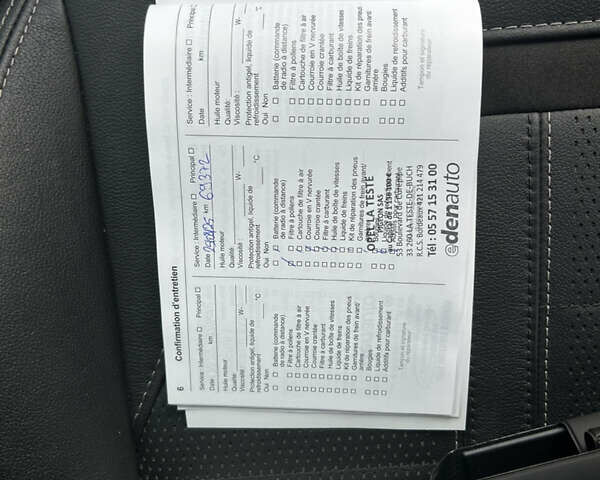 6 Confirmation d'entretien
Service - Intermédiaire □ Principal □
Date km
Huile moteur
Qualité:
Viscosité: W-
Protection antigel, liquide de
refroidissement °C
Oui Non
□ □ Batterie (commande
de radio à distance)
□ □ Filtre à pollens
□ □ Cartouche de filtre à air
□ □ Courroie en V nervurée
□ □ Courroie crantée
□ □ Filtre à carburant
□ □ Huile de boîte de vitesses
□ □ Liquide de freins
□ □ Kit de réparation des pneus
□ □ Garnitures de frein avant/
arrière
□ □ Bougies
□ □ Liquide de refroidissement
□ □ Additifs pour carburant
Tampon et signature
du réparateur
Service - Intermédiaire □ Principal □
Date km 69372
Huile moteur
Qualité:
Viscosité: W-
Protection antigel, liquide de
refroidissement °C
Oui Non
Batterie (commande
de radio à distance)
Filtre à pollens
Cartouche de filtre à air
Courroie en V nervurée
Courroie crantée
Filtre à carburant
Huile de boîte de vitesses
Liquide de freins
Kit de réparation des pneus
Garnitures de frein avant/
OPEL LA TESTE
PISTON SAS
53 Boulevard de
33 260 LA TESTE-DE-BUCH
R.C.S. Bordeaux 421 214 479
Tél : 05 57 15 31 00
edenauto
Service - Intermédiaire □ Principal □
Date km
Huile moteur
Qualité:
Viscosité: W-
Protection antigel, liquide de
refroidissement °C
Oui Non
□ □ Batterie (commande
de radio à distance)
□ □ Filtre à pollens
□ □ Cartouche de filtre à air
□ □ Courroie en V nervurée
□ □ Courroie crantée
□ □ Filtre à carburant
□ □ Huile de boîte de vitesses
□ □ Liquide de freins
□ □ Kit de réparation des pneus
□ □ Garnitures de frein avant/
arrière
□ □ Bougies
□ □ Liquide de refroidissement
□ □ Additifs pour carburant
Tampon et signature
du réparateur